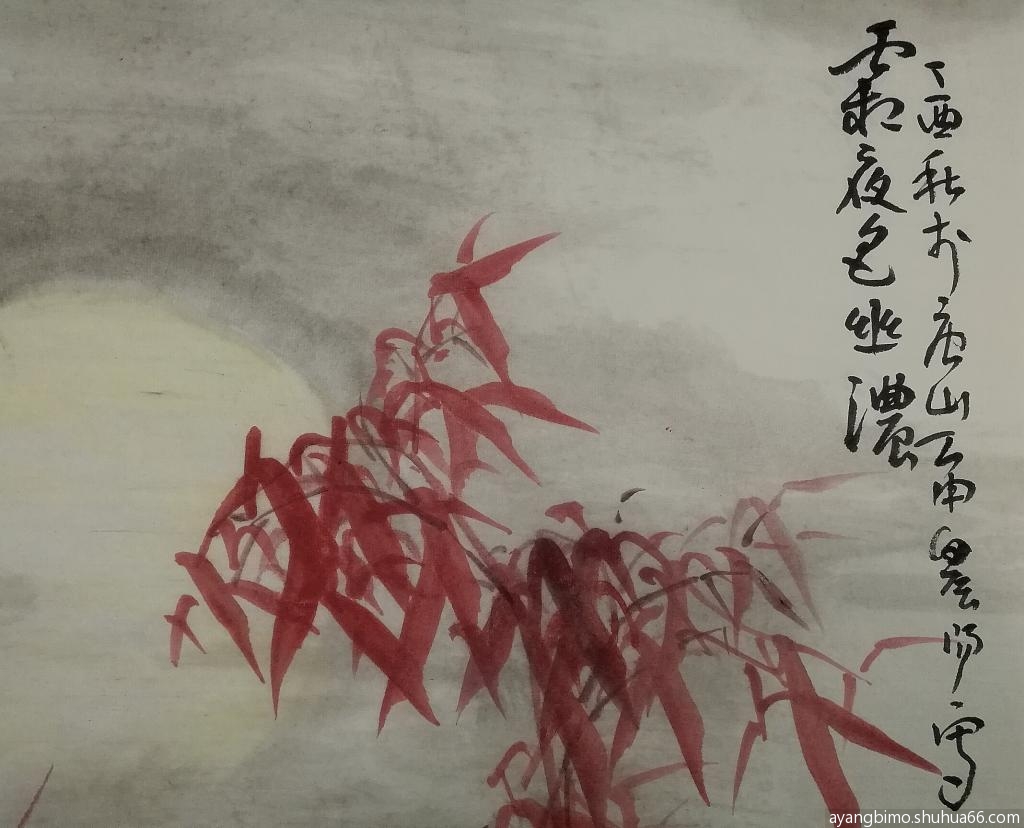 霜夜色濃
丁酉秋於唐山陽寫
ayangbimo.shuhua66.com